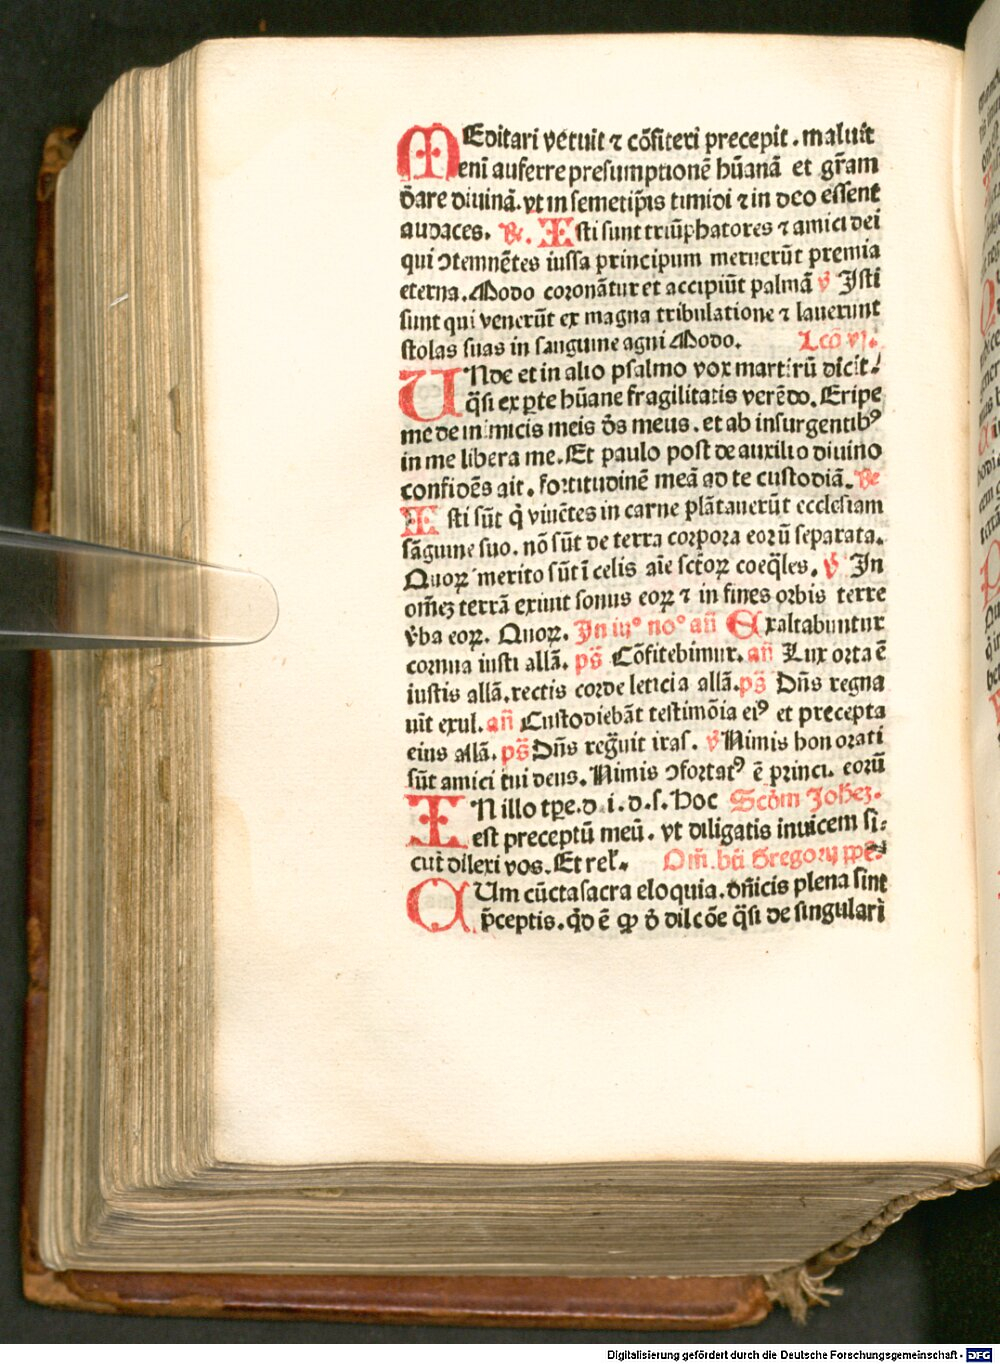 MEditari vetuit ⁊ cōfiteri precepit. maluit
enī auferre presumptionē hūanā et gr̄am
dare diuinā. vt in semetip̄is timidi ⁊ in deo essent
audaces. R̷. Isti sunt triūphatores ⁊ amici dei
qui ↄtemnētes iussa principum meruerūt premia
eterna. Modo coronātur et accipiūt palmā v̷ Isti
sunt qui venerūt ex magna tribulatione ⁊ lauerunt
stolas suas in sanguine agni Modo. Lcō vj.
UNde et in alio psalmo vox martirū dicit.
q̄si ex ꝑte hūane fragilitatis verēdo. Eripe
me de inimicis meis d̄s meus. et ab insurgentibꝰ
in me libera me. Et paulo post de auxilio diuino
confidēs ait. fortitudinē meā ad te custodiā. R̷
Isti sūt q̇ viuētes in carne plātauerūt ecclesiam
sāguine suo. nō sūt de terra corpora eorū separata.
Quoꝝ merito sūt ī celis aīe sctōꝝ coeq̄les. v̷ In
om̄eꝫ terrā exiuit sonus eoꝝ ⁊ in fines orbis terre
v̄ba eoꝝ. Quoꝝ. In iijº noº añ Exaltabuntur
cornua iusti allā. ps̄ Cōfitebimur. añ Lux orta ē
iustis allā. rectis corde leticia allā. ps̄ Dn̄s regna
uit exul. añ Custodiebāt testimōia eiꝰ et precepta
eius allā. ps̄ Dn̄s regn̄uit iras. v̷ Nimis honorati
sūt amici tui deus. Nimis ↄfortatꝰ ē princi. eorū
IN illo tꝑe. d. i. d. s. Hoc Scd̄m Joheꝫ.
est preceptū meū. vt diligatis inuicem si⸗
cut dilexi vos. Et rel̄. Om̄. bti̅ Gregorij ppe.
CUm cūcta sacra eloquia. dn̄icis plena sint
p̄ceptis. q̇d ē ꝙ d̄ dilcōe q̄si de singulari
Digitalisierung gefördert durch die Deutsche Forschungsgemeinschaft - DFG